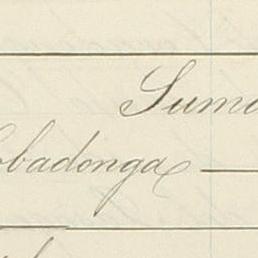 Sum
obadonga